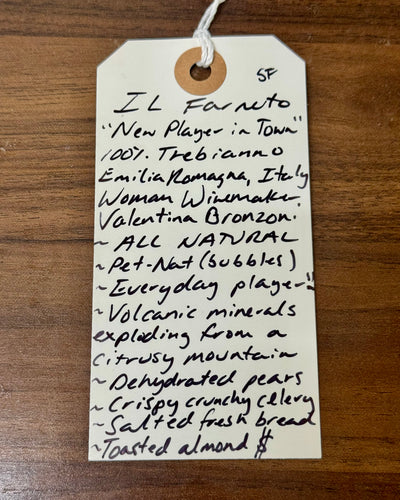 SF
IL Farneto
"New Player in Town"
100%. Trebianno
Emilia Romagna, Italy
Woman Winemaker,
Valentina Bronzoni
~ ALL NATURAL
~ Pet-Nat (bubbles)
~ Everyday player!!
~ Volcanic minerals
exploding from a
citrusy mountain
~ Dehydrated pears
~ Crispy crunchy celery
~ Salted fresh bread
~ Toasted almond $